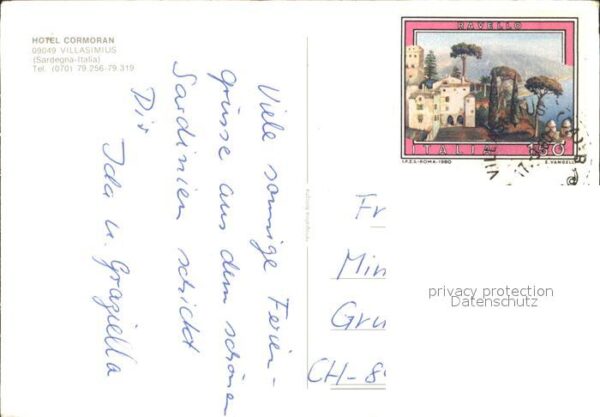 HOTEL CORMORAN
09049 VILLASIMIUS
(Sardegna-Italia)
Tel. (070) 79.256-79.319
Viele sonnige Ferien-
grüsse aus dem schönen
Sardinien schickt
Dir
Ida u. Graziella
RAVELLO
ITALIA
I.P.Z.S.-ROMA-1980
E. VANGELLI
Fr
Min
Gru
CH-8
privacy protection
Datenschutz